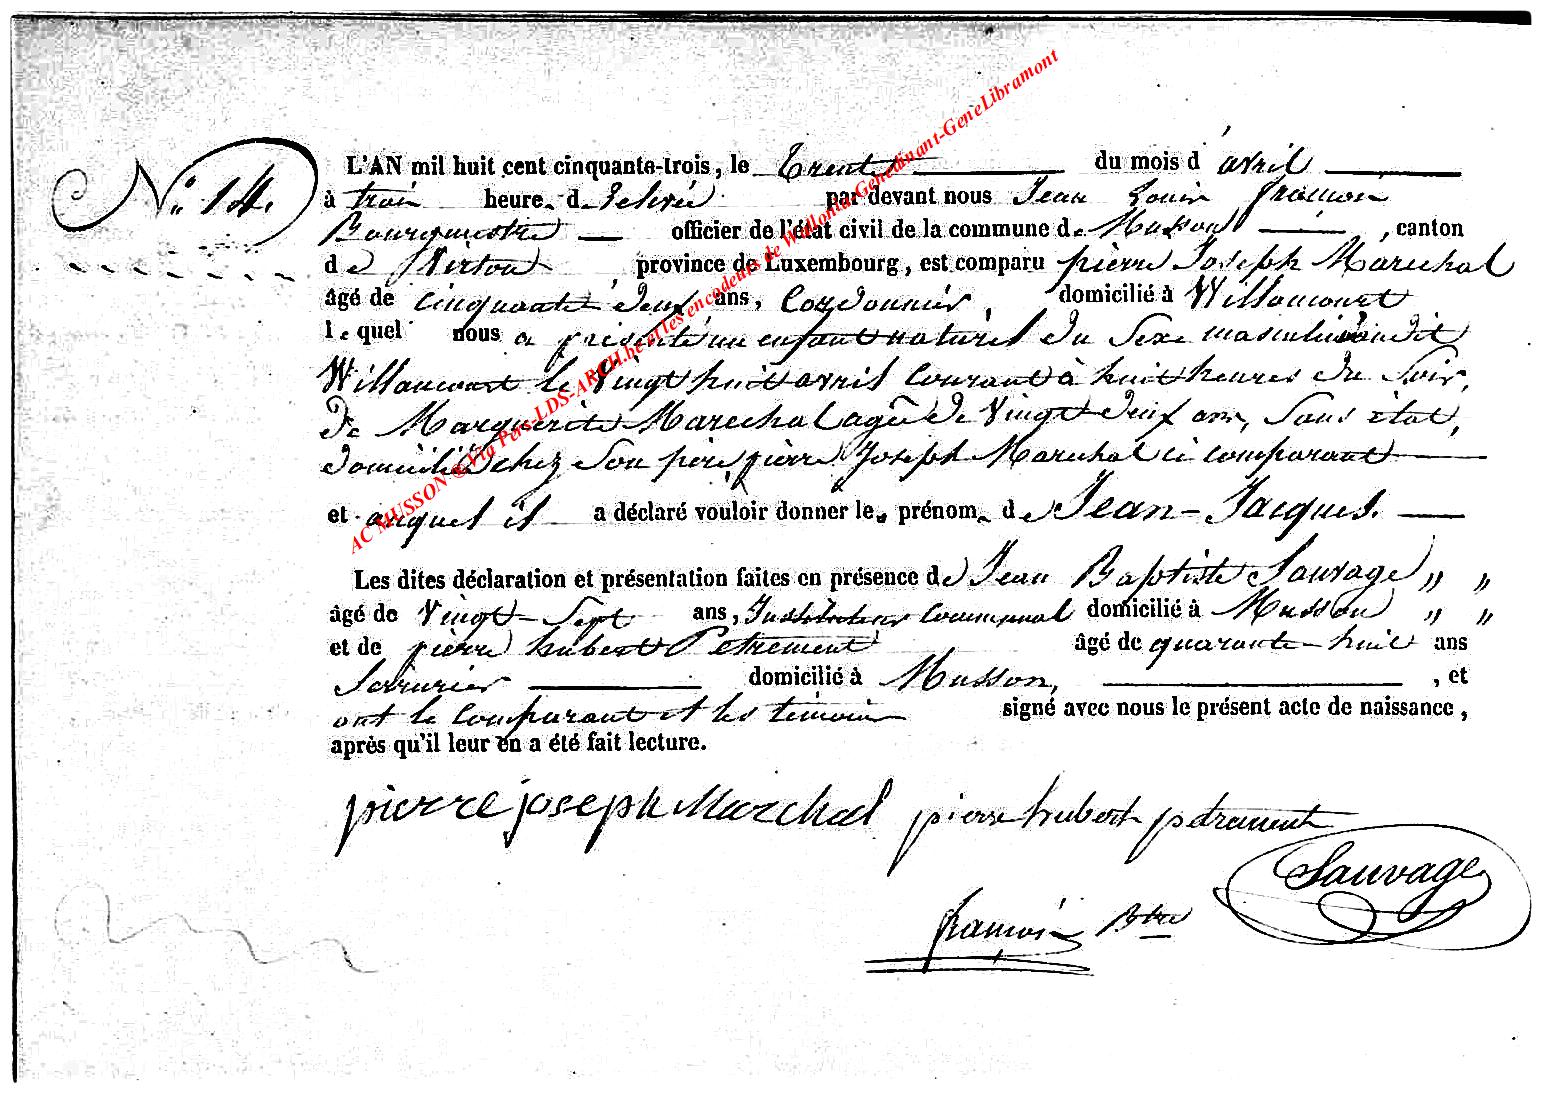 N° 14.
L'AN mil huit cent cinquante-trois, le trente du mois d'avril
à trois heure de relevée par devant nous Jean Louis françois
Bourgmestre officier de l'état civil de la commune de Musson, canton
de Virton province de Luxembourg, est comparu pierre Joseph Maréchal
âgé de cinquante deux ans, Cordonnier, domicilié à Willancourt
lequel nous a présenté un enfant naturel du Sexe masculin né audit
Willancourt le Vingt huit avril Courant à huit heures du Soir,
de Marguerite Marechal agée de Vingt deux ans, Sans état,
domicilié chez Son père, pierre Joseph Marechal ci comparant
et auquel il a déclaré vouloir donner les prénoms de Jean-Jacques.
Les dites déclaration et présentation faites en présence de Jean Baptiste Sauvage " "
âgé de Vingt-Sept ans, Instituteur Communal domicilié à Musson " "
et de pierre hubert Petrement âgé de quarante-huit ans
Serrurier domicilié à Musson, , et
ont le Comparant et les témoins signé avec nous le présent acte de naissance,
après qu'il leur en a été fait lecture.
pierre joseph Marchal pierre hubert petrement
Sauvage
françois Btre
AC MUSSON ® Via Pers-LDS-ARCH.be et les encodeurs de Wallonia-Genedinant-GeneLibramont